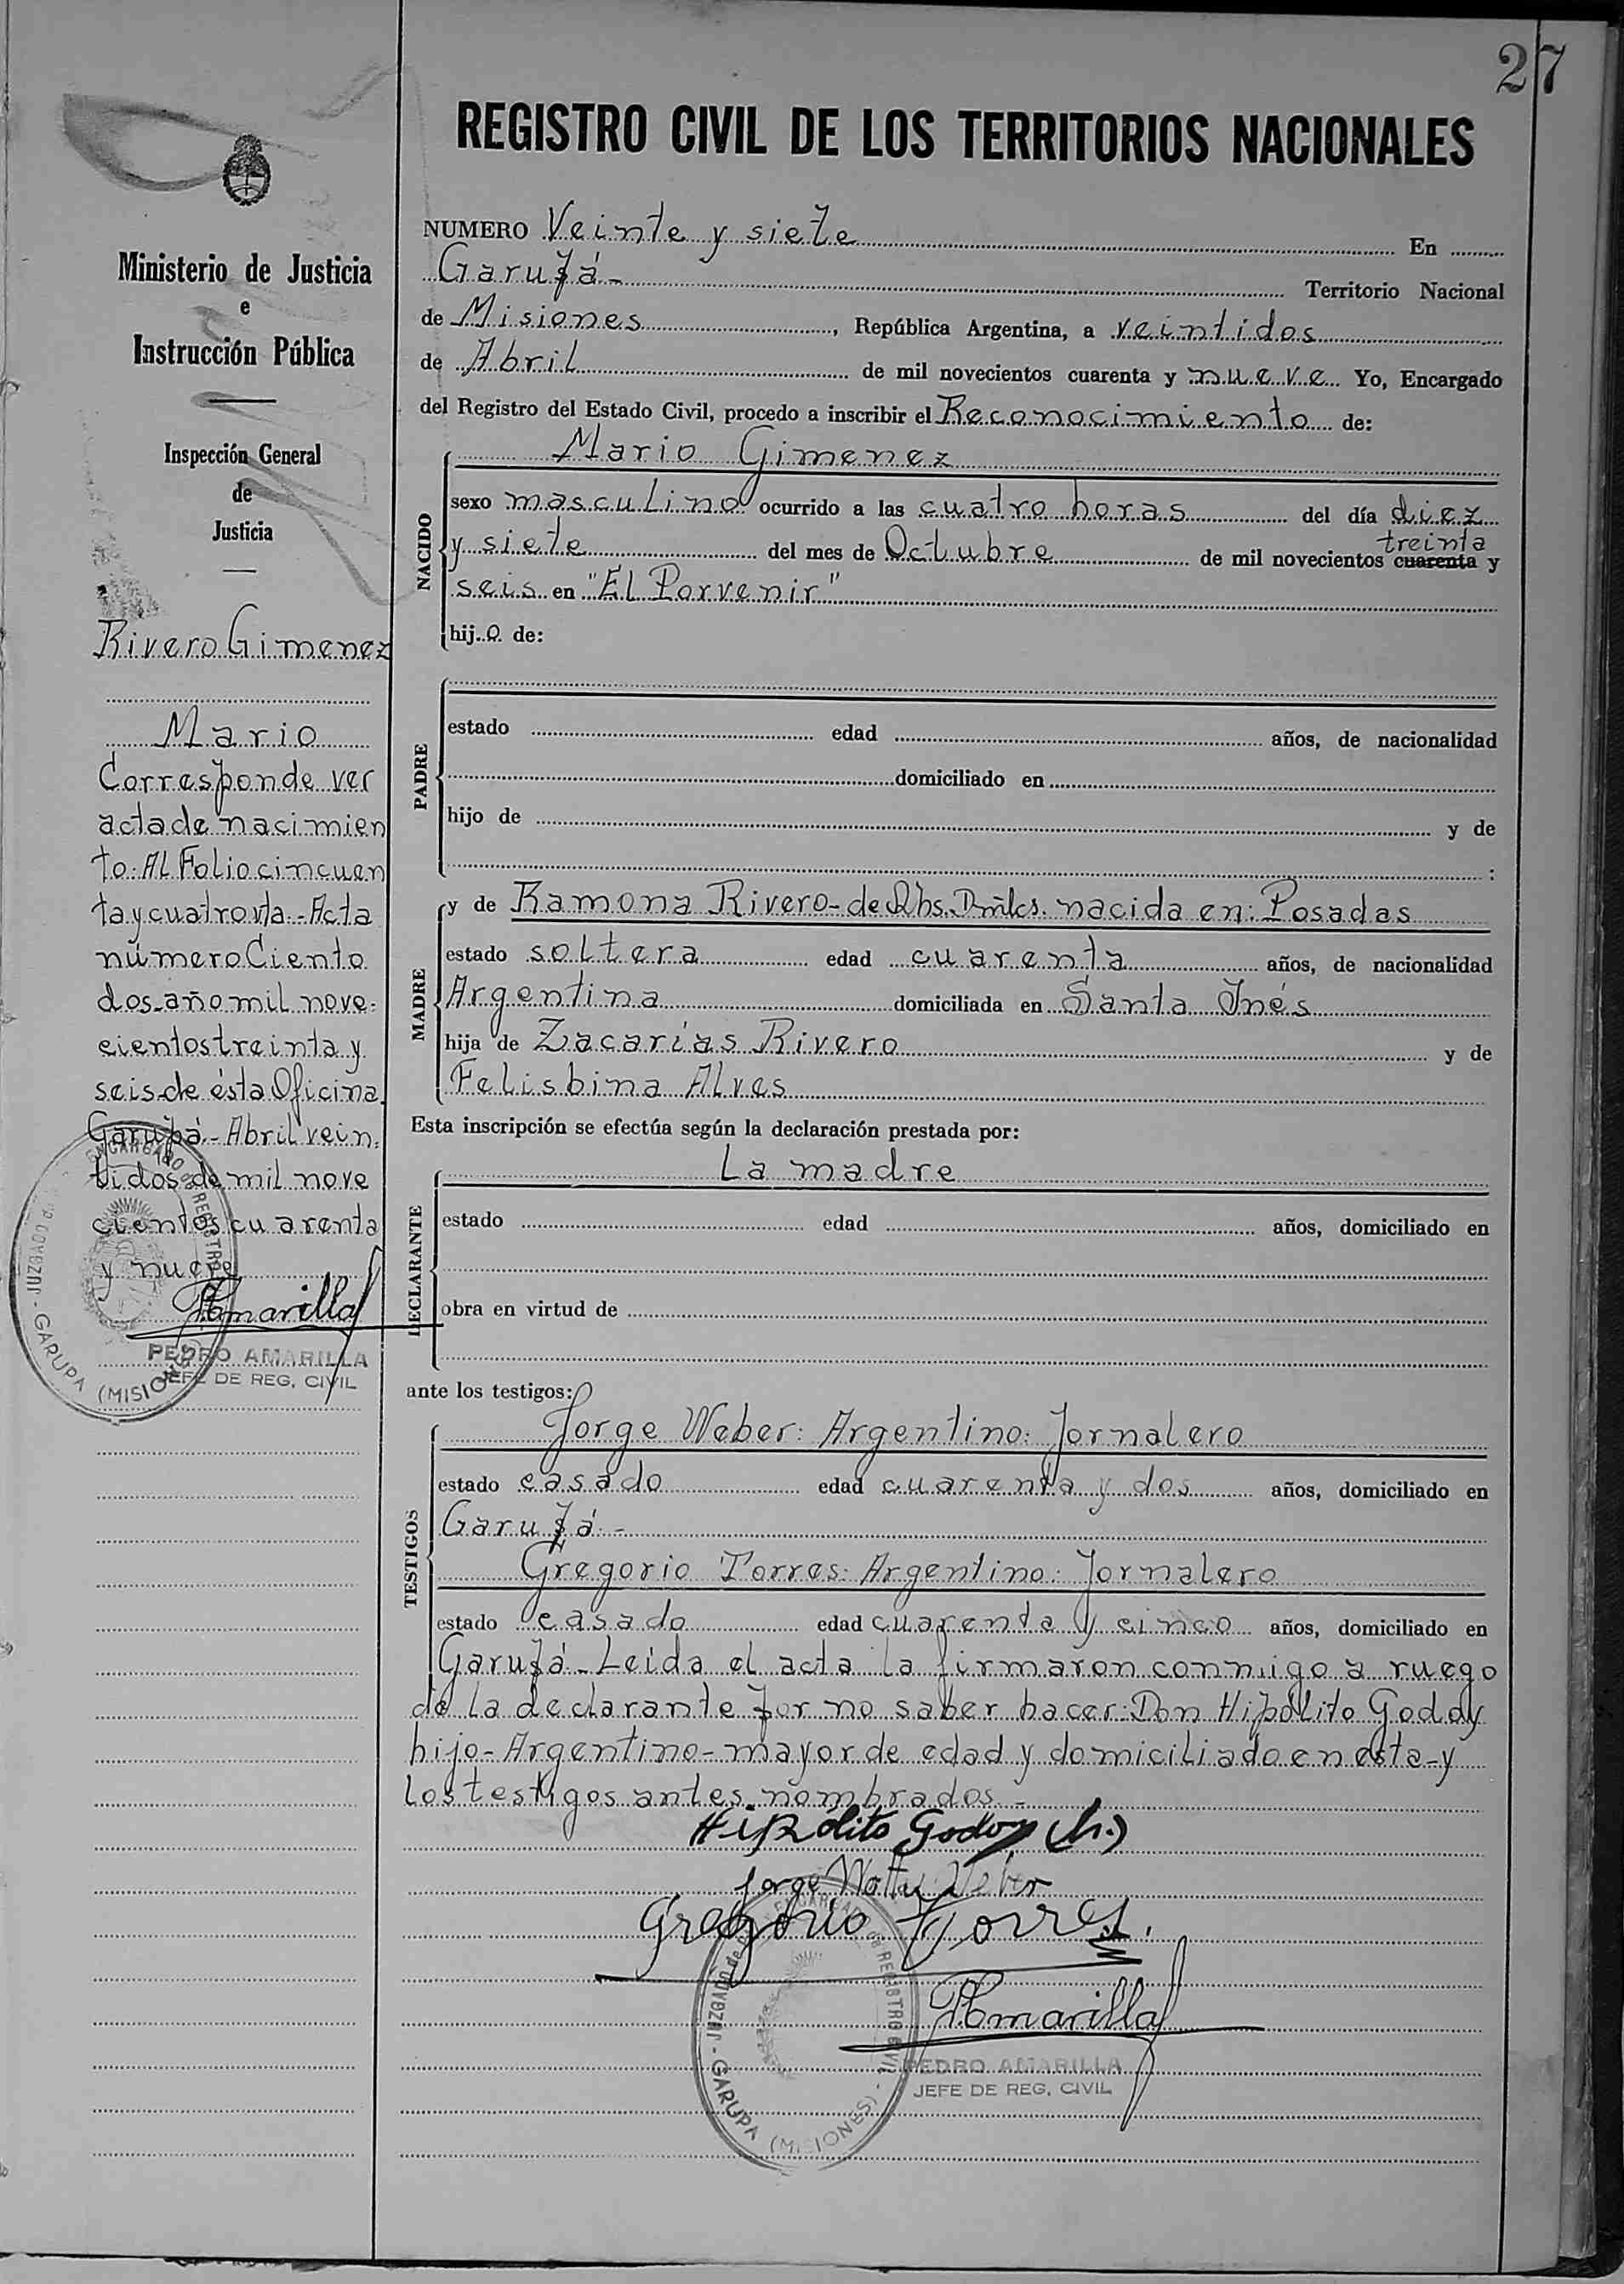 27
REGISTRO CIVIL DE LOS TERRITORIOS NACIONALES
Ministerio de Justicia
e
Instrucción Pública
Inspección General
de
Justicia
Rivero Gimenez
Mario
Corresponde ver
acta de nacimien
to: Al Folio cincuen
ta y cuatro vta.- Acta
número Ciento
dos-año mil nove-
cientos treinta y
seis-de ésta Oficina.
Garupá.- Abril vein-
tidos de mil nove
cientos cuarenta
y nueve
PAmarilla
PEDRO AMARILLA
JEFE DE REG. CIVIL
JUZGADO de ENCARGADO de REGISTRO - GARUPA (MISIONES)
NUMERO Veinte y siete En
Garupá - Territorio Nacional
de Misiones, República Argentina, a veintidos
de Abril de mil novecientos cuarenta y nueve Yo, Encargado
del Registro del Estado Civil, procedo a inscribir el Reconocimiento de:
NACIDO
Mario Gimenez
sexo masculino ocurrido a las cuatro horas del día diez
y siete del mes de Octubre de mil novecientos cuarenta treinta y
seis en "El Porvenir"
hijo de:
PADRE
estado edad años, de nacionalidad
domiciliado en
hijo de y de
:
MADRE
y de Ramona Rivero- de nacida en: Posadas
estado soltera edad cuarenta años, de nacionalidad
Argentina domiciliada en Santa Inés
hija de Zacarías Rivero y de
Felisbina Alves
Esta inscripción se efectúa según la declaración prestada por:
DECLARANTE
La madre
estado edad años, domiciliado en
obra en virtud de
ante los testigos:
TESTIGOS
Jorge Weber: Argentino: Jornalero
estado casado edad cuarenta y dos años, domiciliado en
Garupá -
Gregorio Torres: Argentino: Jornalero
estado casado edad cuarenta y cinco años, domiciliado en
Garupá - Leída el acta la firmaron conmigo a ruego
de la declarante por no saber hacer: Don Hipólito Godoy
hijo - Argentino - mayor de edad y domiciliado en ésta - y
los testigos antes nombrados -
Hipólito Godoy (h.)
Jorge Weber
Gregorio Torres.
PAmarilla
PEDRO AMARILLA
JEFE DE REG. CIVIL
JUZGADO de ENCARGADO de REGISTRO CIVIL - GARUPA (MISIONES)